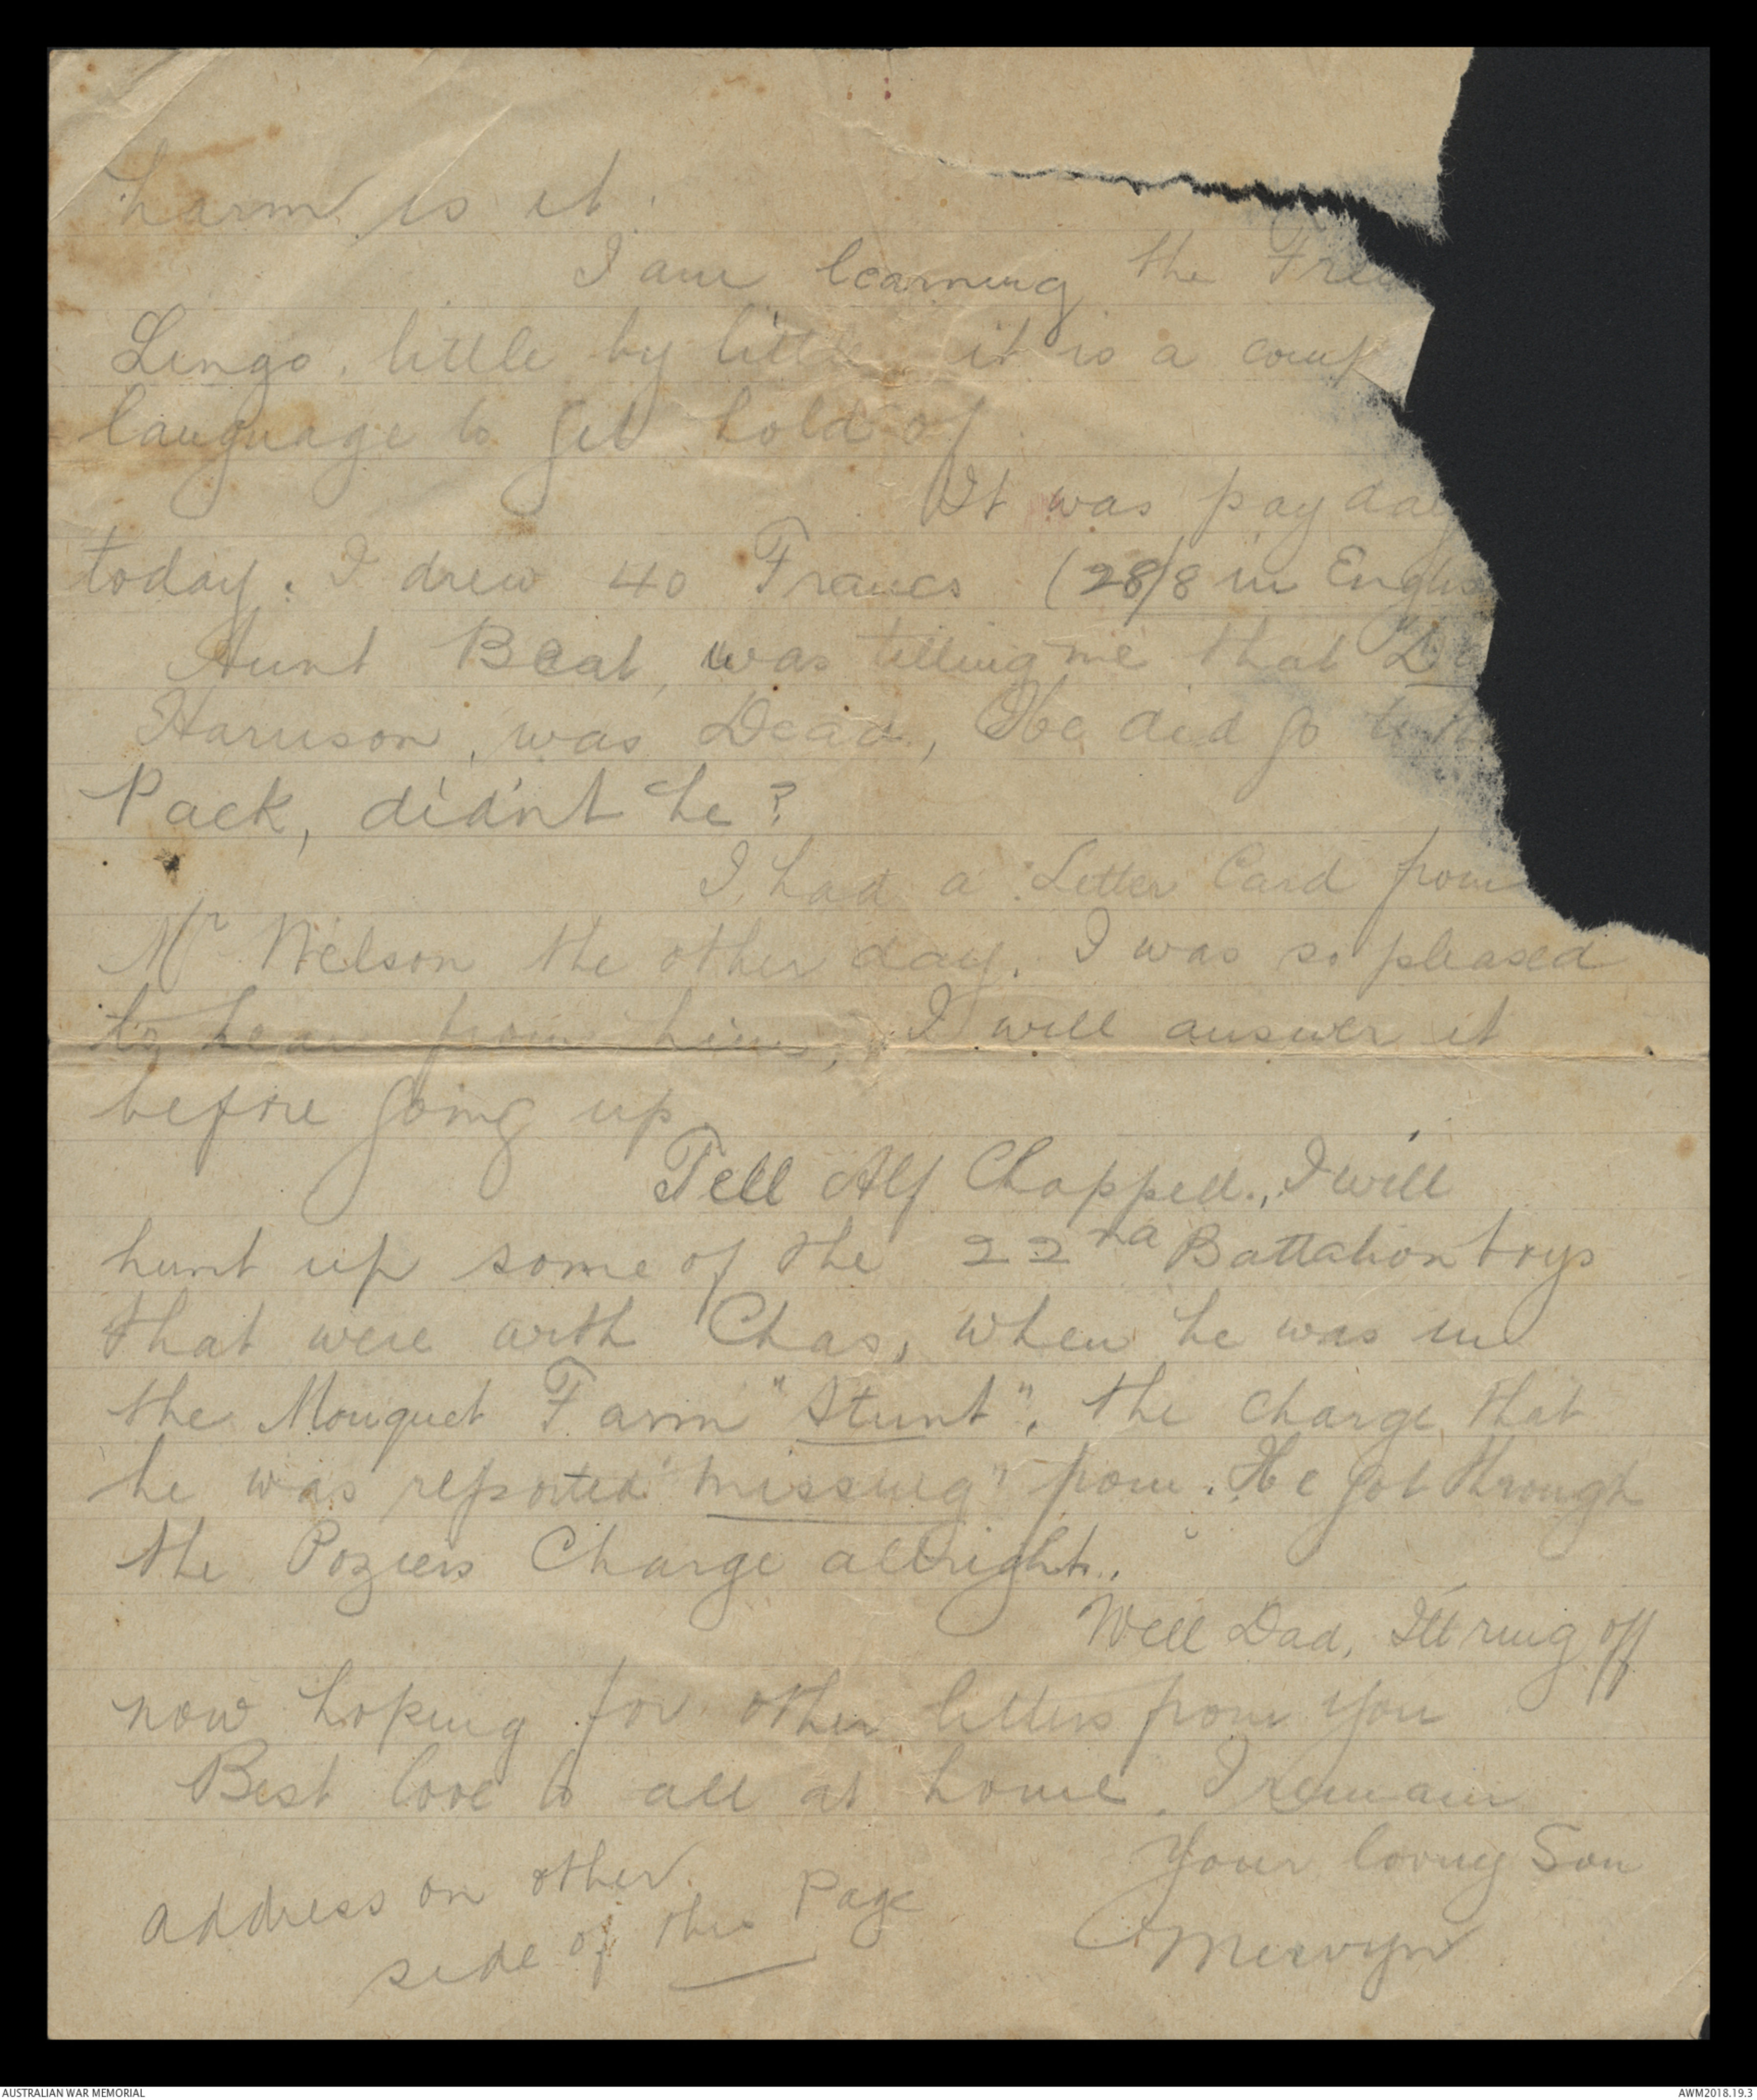 harm is it.
I am learning the Fre
Lingo, little by little it is a comp
language to get hold of
It was pay day
today. I drew 40 Francs (28/8 in Englis
Aunt Beat, was telling me that "D
Harrison, was Dead, He did go to the
Pack, did'nt he?
I had a Letter Card from
Mr Nelson the other day. I was so pleased
to hear from him, I will answer it
before going up.
Tell Alf Chappell., I will
hunt up some of the 22nd Battalion boys
that were with Chas, when he was in
the Mouquet Farm "Stunt". the charge that
he was reported "missing" from. He got through
the Poziers Charge allright.
Well Dad, I'll ring off
now hoping for other letters from you
Best love to all at home. I remain
Your loving Son
Mervyn
address on other
side of this Page
AUSTRALIAN WAR MEMORIAL
AWM2018.19.3